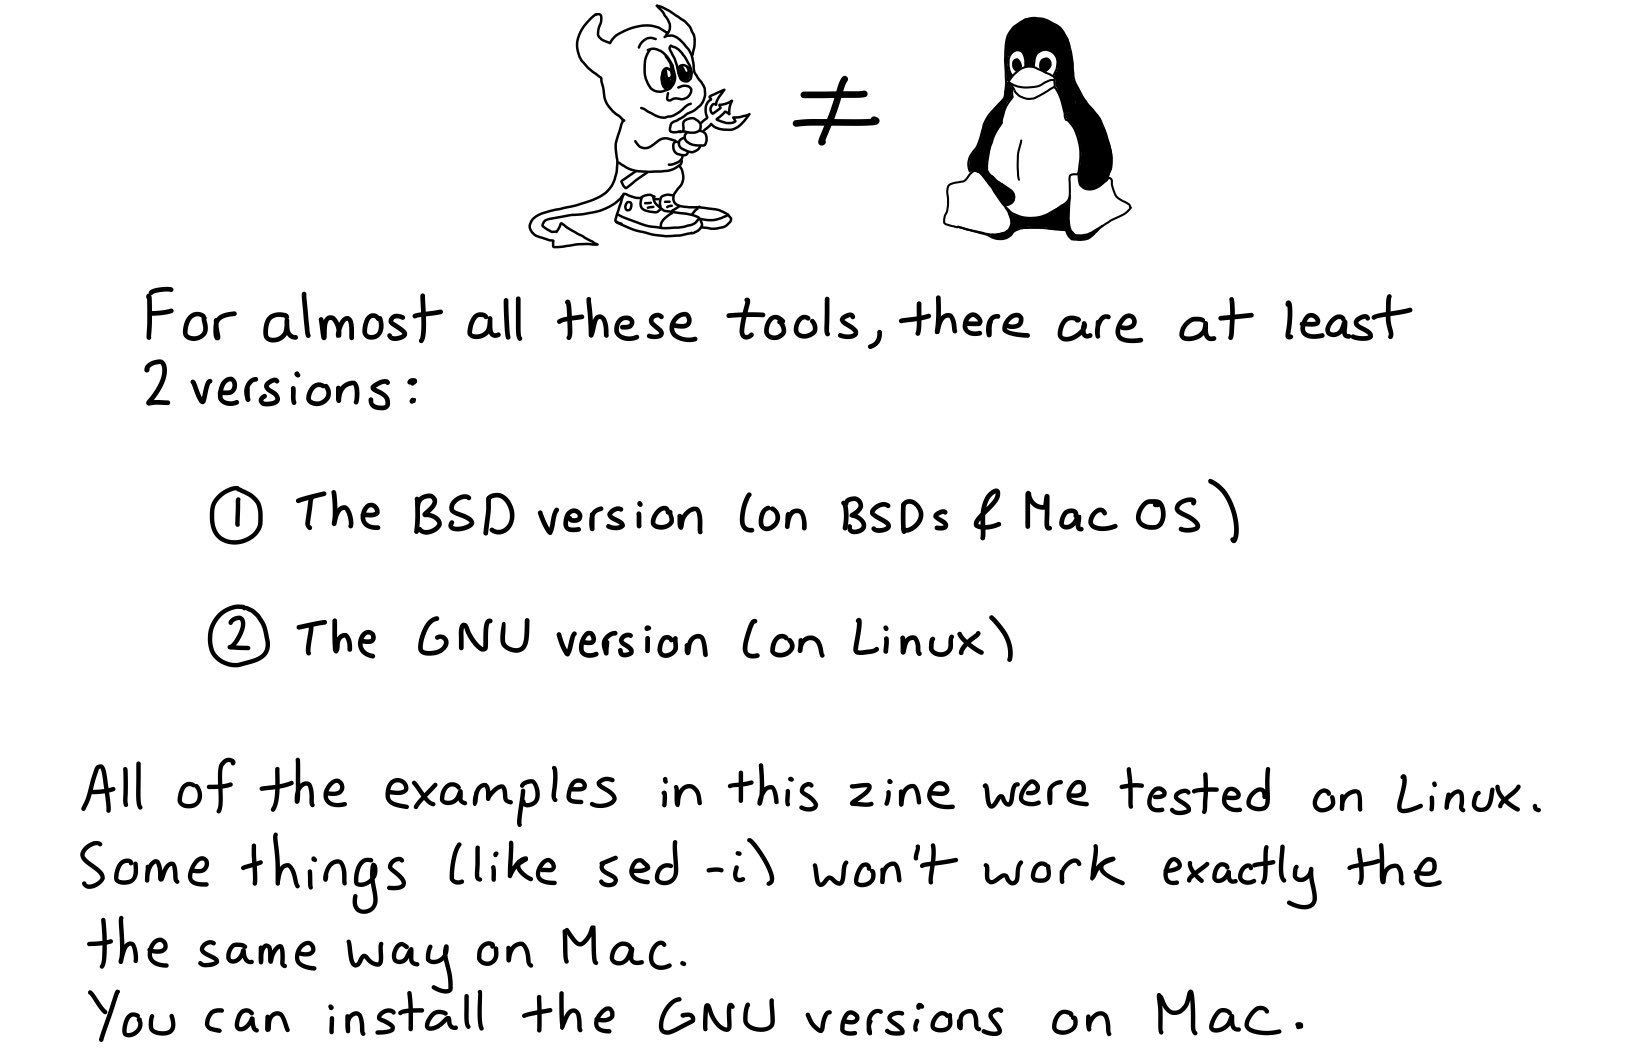 ≠
For almost all these tools, there are at least
2 versions:
① The BSD version (on BSDs & Mac OS)
② The GNU version (on Linux)
All of the examples in this zine were tested on Linux.
Some things (like sed -i) won't work exactly the
the same way on Mac.
You can install the GNU versions on Mac.